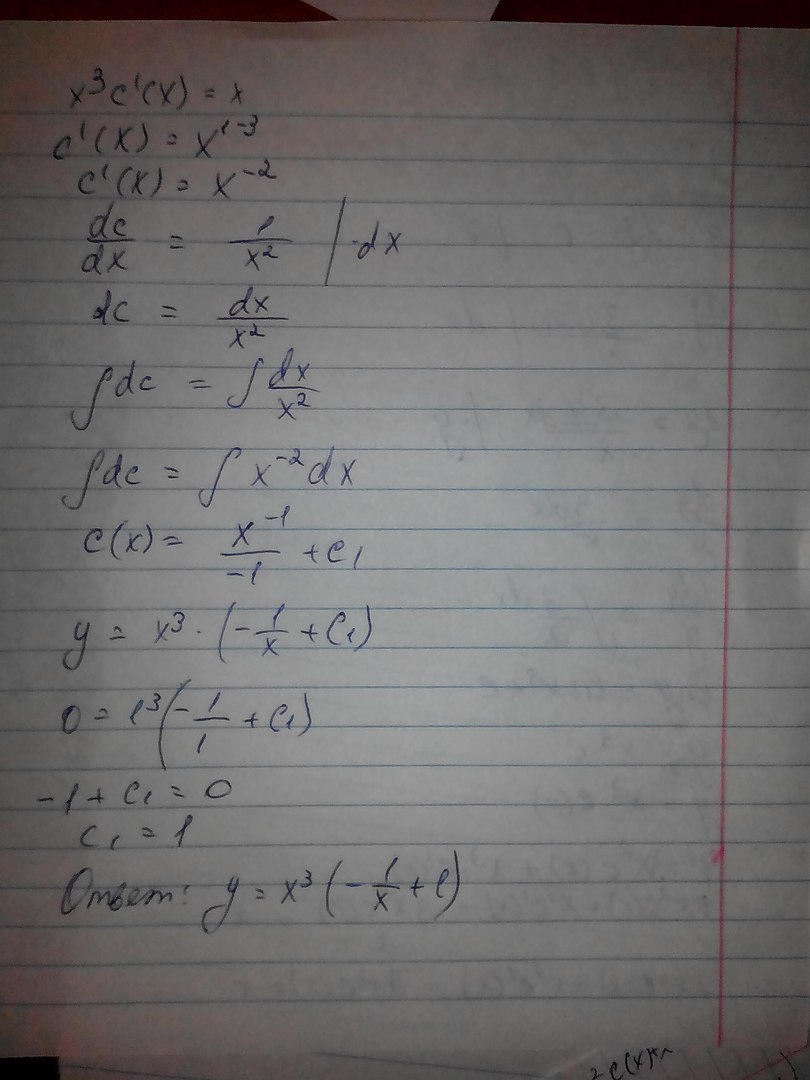 x³c'(x) = x
c'(x) = x¹⁻³
c'(x) = x⁻²
dc/dx = 1/x² | ·dx
dc = dx/x²
∫dc = ∫dx/x²
∫dc = ∫x⁻²dx
c(x) = x⁻¹/-1 + c₁
y = x³ · (-1/x + C₁)
0 = 1³(-1/1 + C₁)
-1 + c₁ = 0
c₁ = 1
Ответ: y = x³(-1/x + 1)